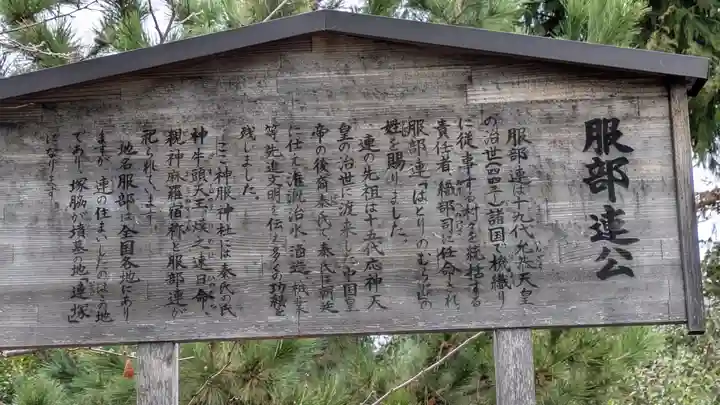 服部連公
服部連は十九代允恭天皇
の治世(四四三)諸国で機織り
に従事する村々を統括する
責任者、織部司に任命され、
服部連「はとりのむらじ」の
姓を賜りました。
連の先祖は十五代応神天
皇の治世に渡来した中国皇
帝の後裔秦氏で秦氏は朝廷
に仕え潅漑治水、酒造、機業
等、先進文明を伝え多くの功績を
残しました。
ここ神服神社には秦氏の氏
神牛頭天王、熯之速日命、
親神麻羅宿祢と服部連が
祀られています。
地名服部は全国各地にあり
ますが、連の住まいしたのはこの地
であり、塚脇が墳長の地「連塚」
になります。